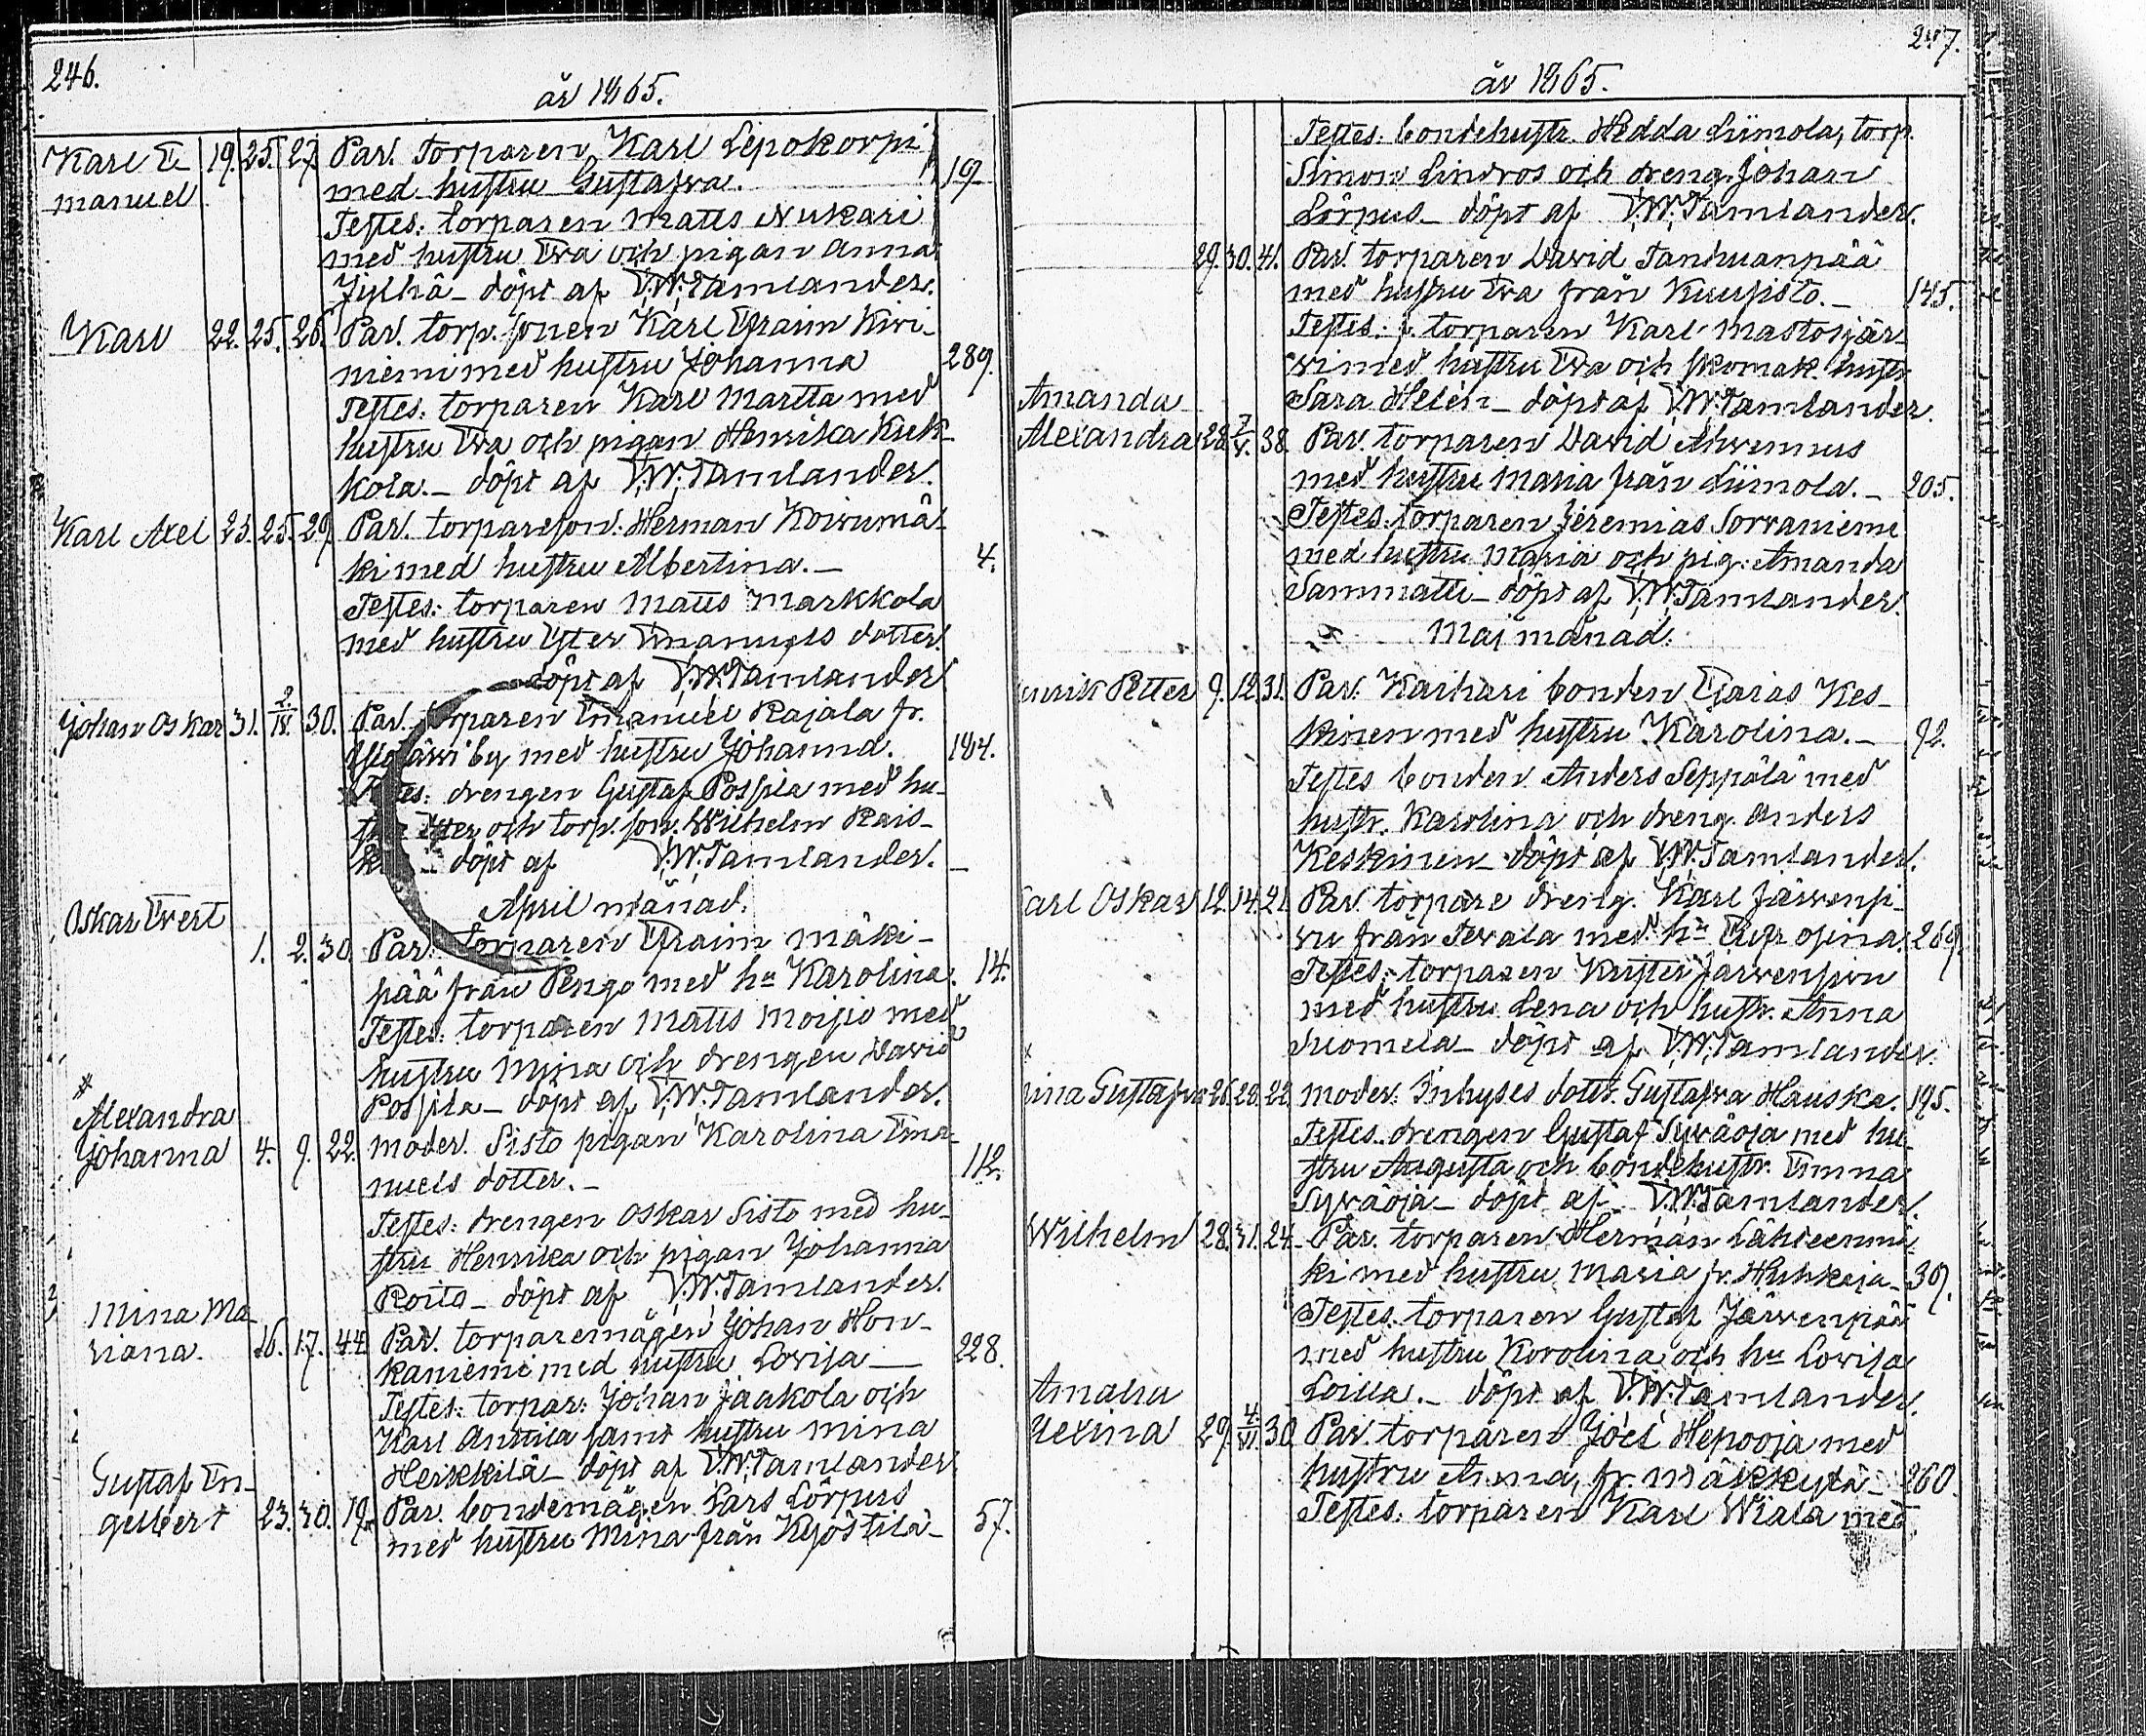 246.
år 1865.
Karl E- 19. 25. 27. Par. torparen Karl Lepokorpi
manuel med hustru Gustafva. 19.
Testes: torparen Matts Nukari
med hustru Eva och pigan Anna
Jylhä – döpt af V.W. Tamlander.
Karl 22. 25. 26. Par. torp. sonen Karl Efraim Kivi-
niemi med hustru Johanna 289.
Testes: torparen Karl Martta med
hustru Eva och pigan Henrika Kuk-
kola. – döpt af V.W. Tamlander.
Karl Axel 23. 25. 29. Par. torpareson. Herman Koivumä-
ki med hustru Albertina. – 4.
Testes: torparen Matts Markkola
med hustru Ester Emanuels dotter.
döpt af V.W. Tamlander
Johan Oskar 31. 2/IV. 30. Par. torparen Emanuel Rajala fr.
by med hustru Johanna. 184.
Testes: drengen Gustaf Possila med hu-
och torp. son. Wilhelm Rais-
döpt af V.W. Tamlander. –
April månad.
Oskar Evert
1. 2. 30. Par. torparen Efraim Mäki-
pää från Pengo med hn Karolina. 14.
Testes: torparen Matts Moisio med
hustru Mina och drengen David
Possila – döpt af V.W. Tamlander.
Alexandra
Johanna 4. 9. 22. moder. Sisto pigan Karolina Ema-
nuels dotter. – 112.
Testes: drengen Oskar Sisto med hu-
stru Henrika och pigan Johanna
Roito – döpt af V.W. Tamlander.
Mina Ma-
riana. 16. 17. 44. Par. torparemågen Johan Hon-
kaniemi med hustru Lovisa – 228.
Testes: torpar: Johan Jaakola och
Karl Anttila samt hustru Mina
Heikkilä – döpt af V.W. Tamlander
Gustaf En-
gelbert 23. 30. 19. Par. bondemågen Lars Lörpus
med hustru Mina från Kyöstilä – 57.
247.
år 1865.
Testes: bondehustr. Hedda Liimola, torp.
Simon Lindros och dreng. Johan
Lörpus – döpt af V.W. Tamlander.
29. 30. 41. Par. torparen David Tanhuanpää
med hustru Eva från Kuusisto. – 145.
Testes: f. torparen Karl Mastosjär-
vi med hustru Eva och skomak. hustr
Sara Helén – döpt af V.W. Tamlander.
Amanda
Alexandra 28. 7/V. 38. Par. torparen David Ahvennus
med hustru Maria från Liimola. – 205.
Testes: torparen Jeremias Sorvaniemi
med hustru Maria och pig: Amanda
Sammatti – döpt af V.W. Tamlander.
Maj månad.
enrik Petter 9. 12. 31. Par. Kaihari bonden Esaias Kes-
kinen med hustru Karolina. – 92.
Testes bonden Anders Seppälä med
hustr. Karolina och dreng. Anders
Keskinen – döpt af V.W. Tamlander.
Carl Oskar 12. 14. 21. Par. torpare dreng. Karl Järvensi-
vu från Tevala med hn Eufrosina. 269.
Testes: torparen Kuster Järvensivu
med hustru Lena och hustr. Anna
Suomela – döpt af V.W. Tamlander.
mina Gustafva 26. 28. 22. moder: Inhyses dotr. Gustafva Hauska. 195.
Testes. drengen Gustaf Syväoja med hu-
stru Augusta och bondehustr. Emma
Syväoja – döpt af V.W. Tamlander.
Wilhelm 28. 31. 24. Par. torparen Herman Lähteenmä-
ki med hustru Maria fr. Huhkoja – 307.
Testes: torparen Gustaf Järvenpää
med hustru Korolina och hn Lovisa
Loilla. – döpt af V.W. Tamlander.
Amalia
Alexina 29. 4/VI. 30. Par. torparen Joél Hepooja med
hustru Anna, fr. Mäkkylä – 260.
Testes: torparen Karl Wiala med